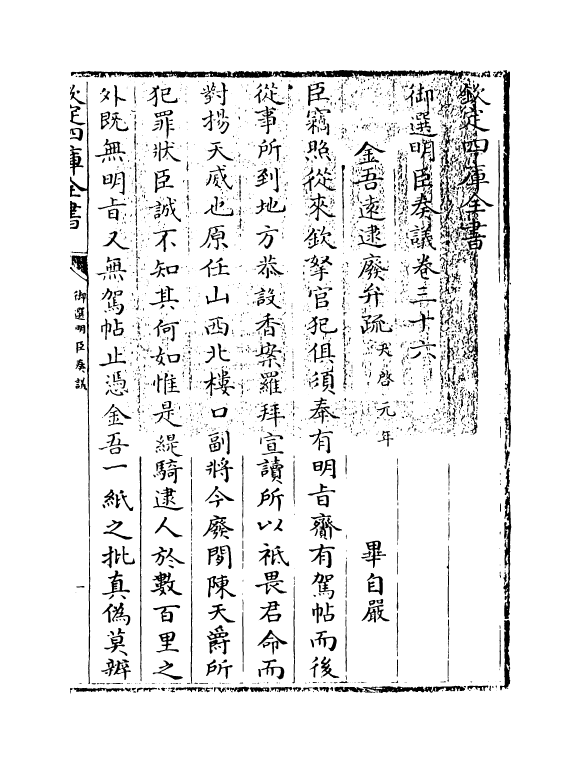 欽定四庫全書
御選明臣奏議卷三十六
金吾遠逮廢弁疏天啓元年 畢自嚴
臣竊照從來欽拏官犯俱須奉有明旨齎有駕帖而後
從事所到地方恭設香案羅拜宣讀所以祇畏君命而
對揚天威也原任山西北樓口副將今廢閒陳天爵所
犯罪狀臣誠不知其何如惟是緹騎逮人於數百里之
外既無明旨又無駕帖止憑金吾一紙之批真偽莫辨
欽定四庫全書
御選明臣奏議
一